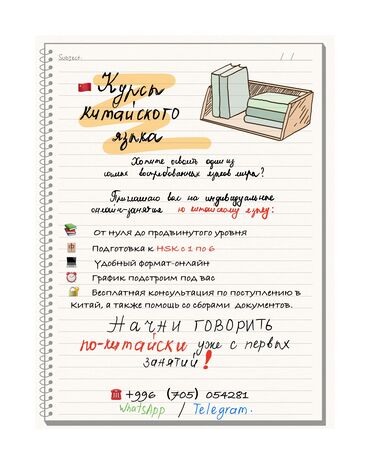 Subject:
/ /
🇨🇳 Курсы
китайского
языка
Хотите освоить один из
самых востребованных языков мира?
Приглашаю вас на индивидуальные
онлайн-занятия по китайскому языку:
📚 От нуля до продвинутого уровня
🀄 Подготовка к HSK с 1 по 6
💻 Удобный формат-онлайн
⏰ График подстроим под вас
🔐 Бесплатная консультация по поступлению в
Китай, а также помощь со сборами документов.
Начни говорить
по-китайски уже с первых
занятий!
☎️ +996 (705) 054281
WhatsApp / Telegram.